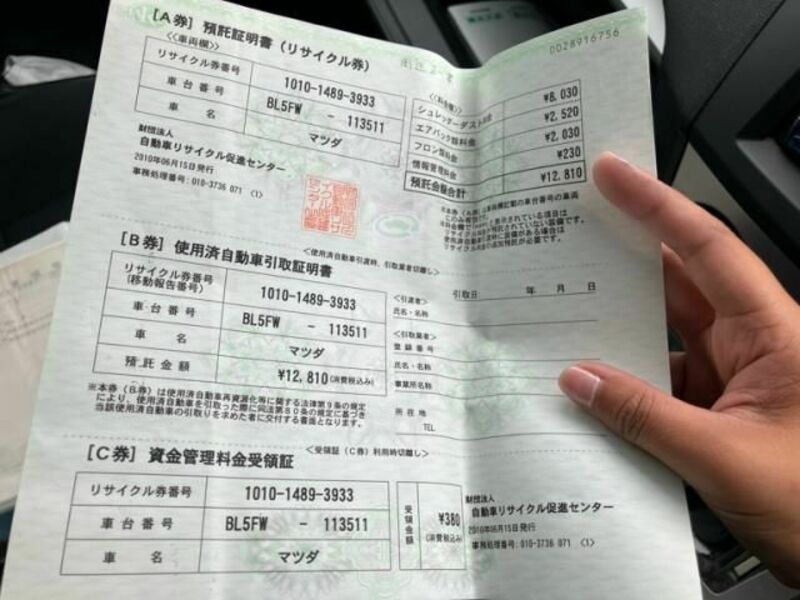 0028916756
[A券] 預託証明書(リサイクル券)
<<車両欄>>
リサイクル券番号 1010-1489-3933
車台番号 BL5FW - 113511
車名 マツダ
財団法人
自動車リサイクル促進センター
2010年06月15日発行
事務処理番号: 010-3736 071 <1>
<<料金欄>>
シュレッダーダスト料金 ¥8,030
エアバッグ類料金 ¥2,520
フロン類料金 ¥2,030
情報管理料金 ¥230
預託金額合計 ¥12,810
[B券] 使用済自動車引取証明書
<使用済自動車引渡時、引取業者切離し>
リサイクル券番号
(移動報告番号) 1010-1489-3933
車台番号 BL5FW - 113511
車名 マツダ
預託金額 ¥12,810(消費税込み)
※本券(B券)は使用済自動車再資源化等に関する法律第9条の規定
により、使用済自動車を引取った際に同法第80条の規定に基づき
当該使用済自動車の引取りを求めた者に交付する書面となります。
引取日 年 月 日
<引渡者>
氏名・名称
<引取業者>
登録番号
氏名・名称
事業所名称
所在地
TEL
[C券] 資金管理料金受領証
<受領証(C券)利用時切離し>
リサイクル券番号 1010-1489-3933
車台番号 BL5FW - 113511
車名 マツダ
受領金額 ¥380
(消費税込み)
財団法人
自動車リサイクル促進センター
2010年06月15日発行
事務処理番号: 010-3736 071 <1>